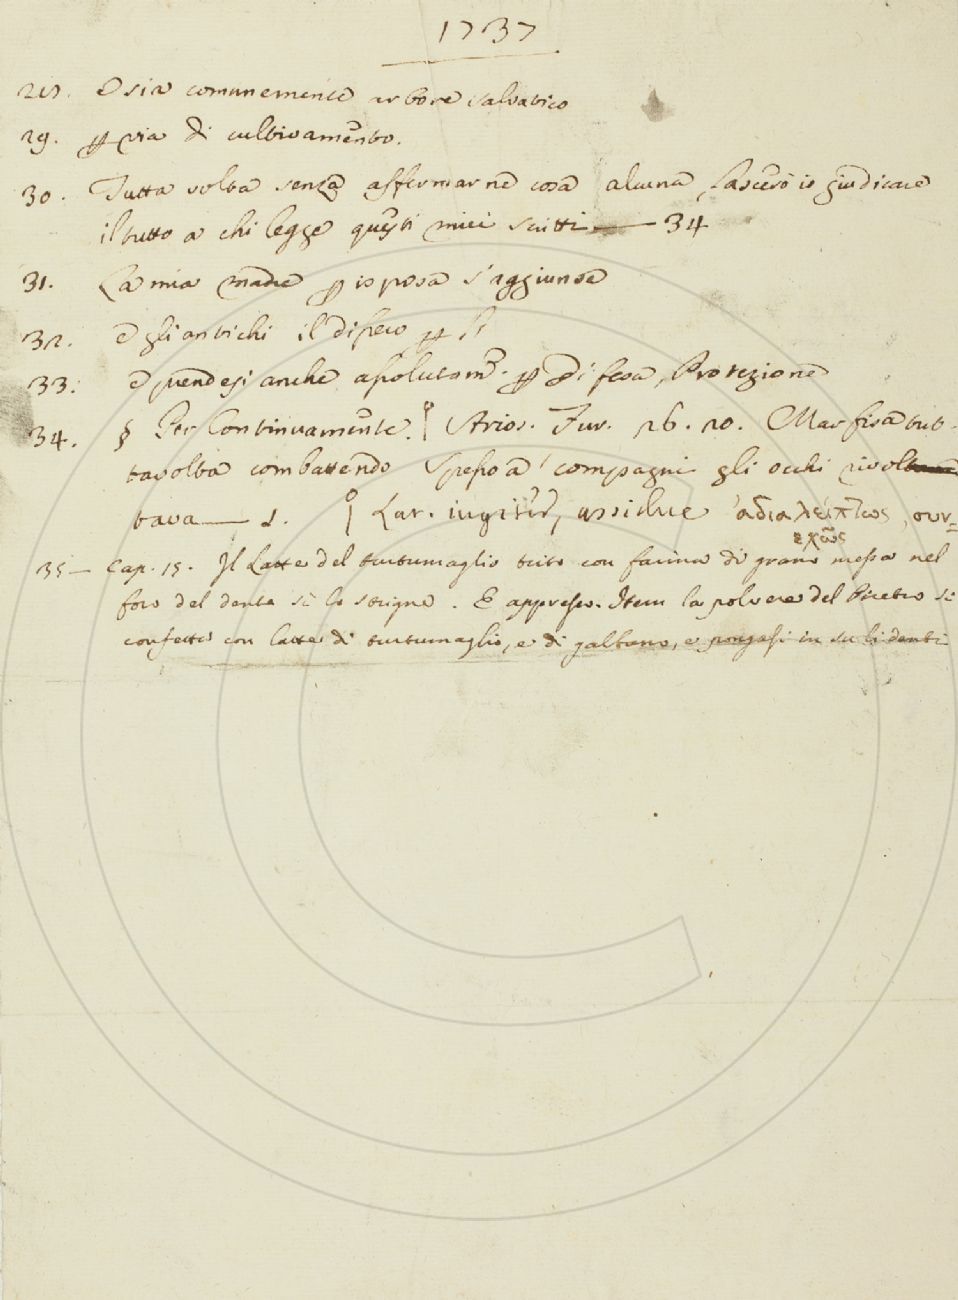 1737
28. O sia comunemente arbore salvatico
29. ꝑ via di cultivamento.
30. Tutta volta senza affermarne cosa alcuna, lascerò io giudicare
il tutto a chi legge questi miei scritti — 34
31. La mia madre ꝑ isposa s'aggiunse
32. e gli antichi il difeco ꝑ
33. e prendesi anche assolutam. ꝑ Difesa, Protezione
34. § Per Continuamente. Arios. Fur. 26. 20. Marfisa tut-
tavolta combattendo Spesso a' compagni gli occhi rivol
tava — 1. Lat. iugiter, assidue ἀδιαλείπτως, συν-
εχῶς
35 — Cap. 15. Il Latte del turtumaglio trito con farina di grano messa nel
foro del dente sì lo strigne. E appresso. Item la polvere del Piretro si
confetti con latte di turtumaglio, e di galbano, e pongasi in su li denti